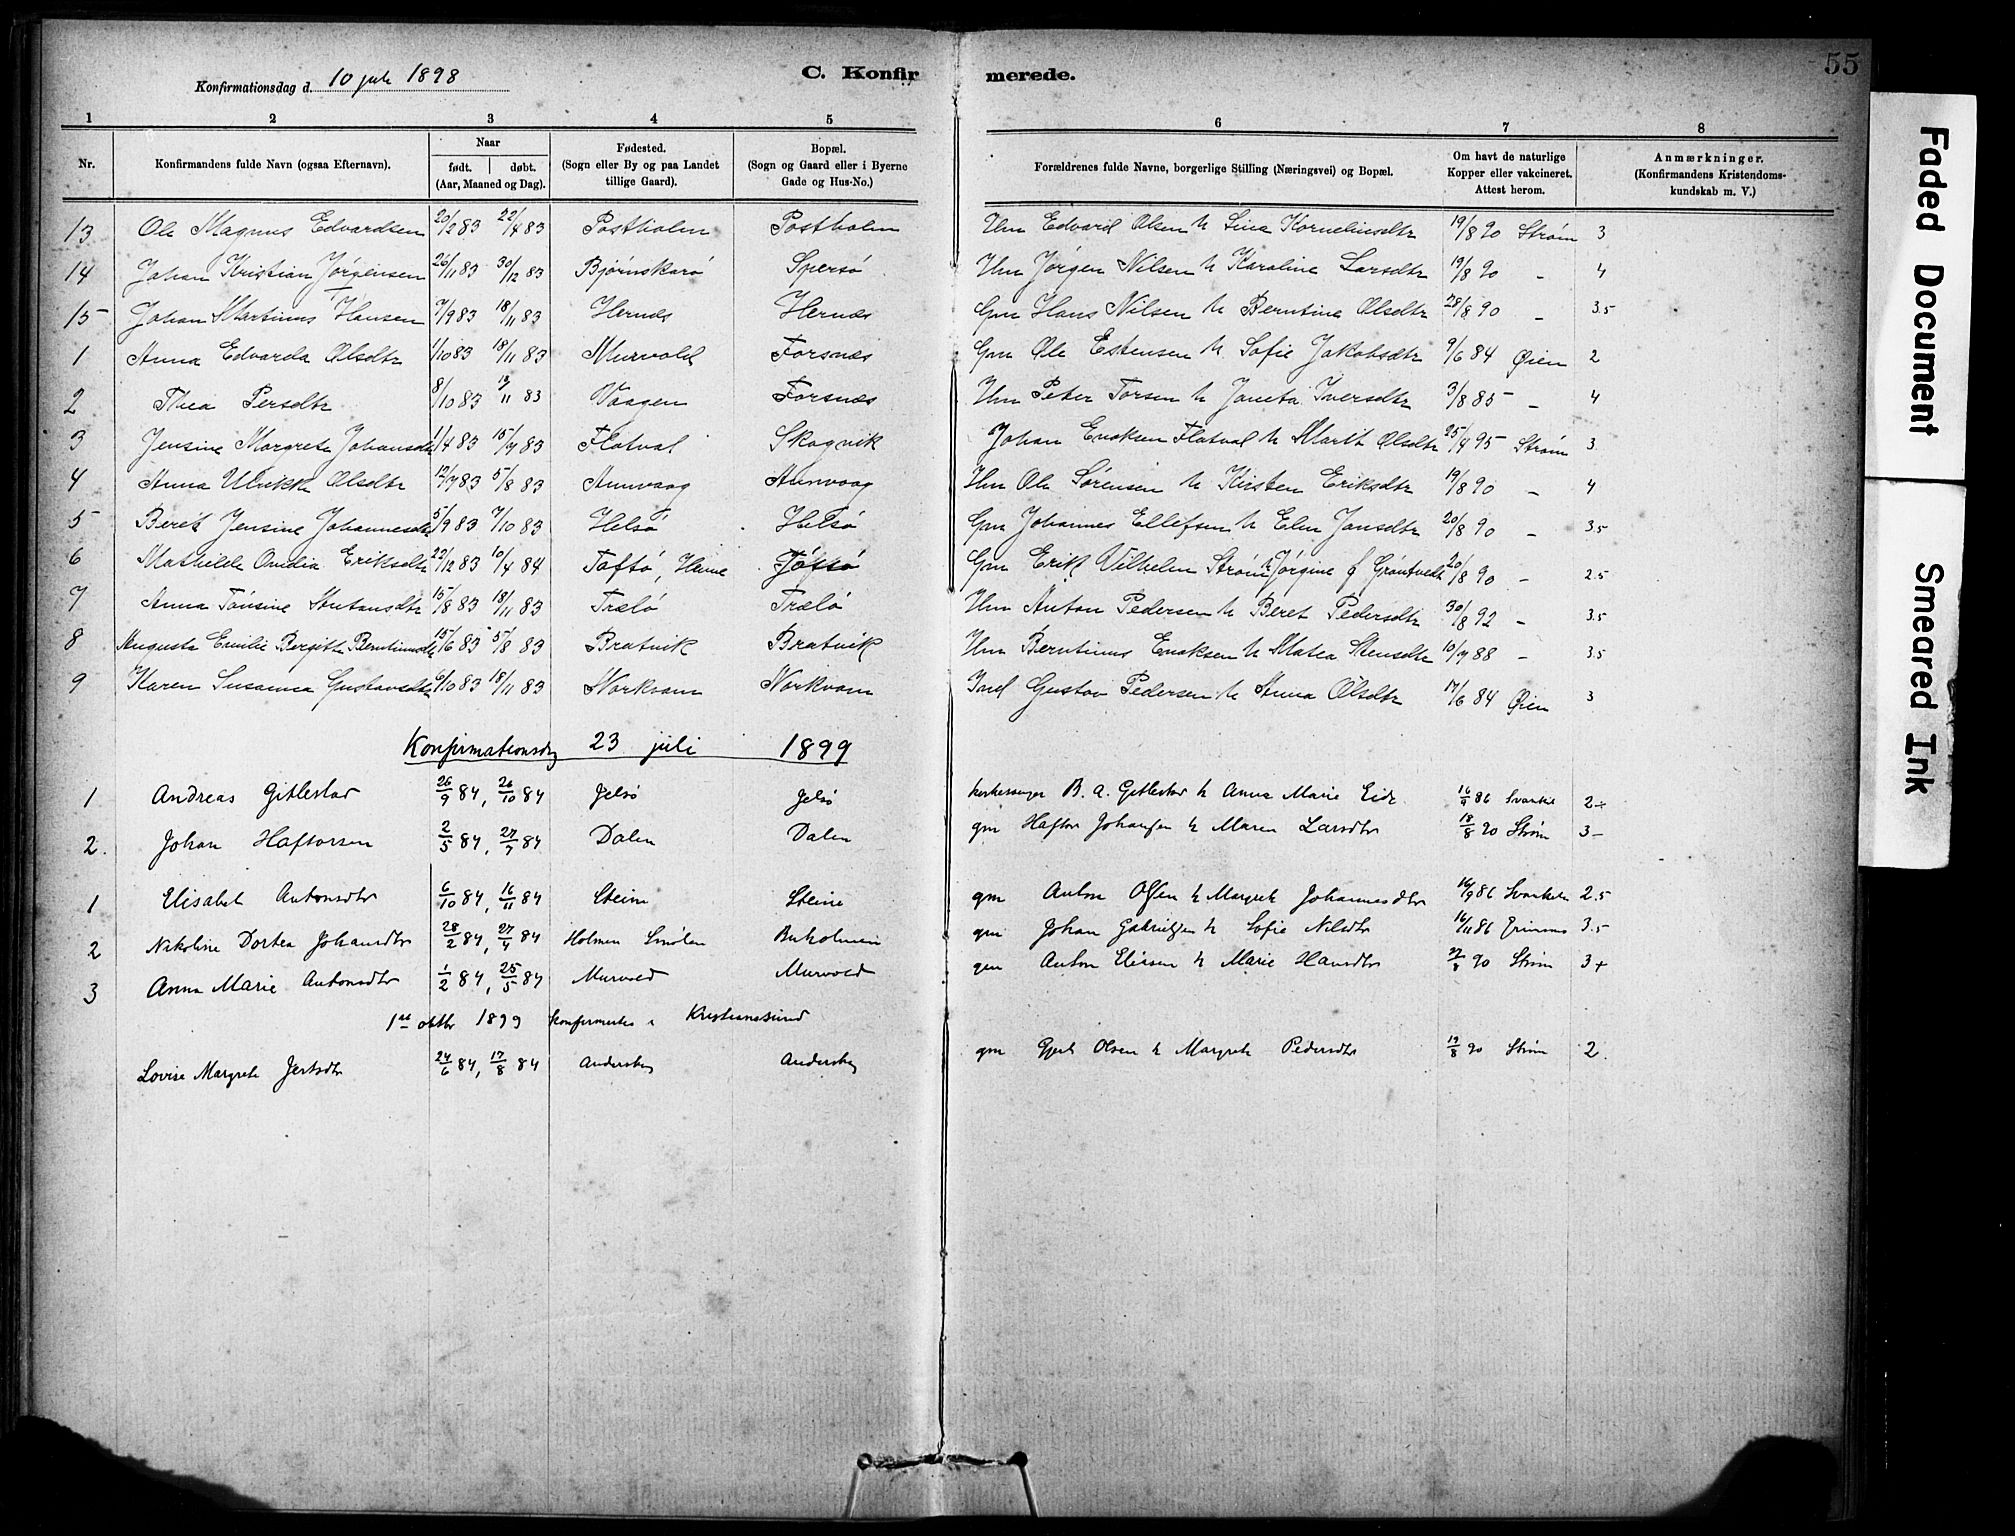 55
C. Konfirmerede.
Konfirmationsdag d. 10 juli 1898
1 2 3 4 5 6 7 8
Nr. Konfirmandens fulde Navn (ogsaa Efternavn). Naar født. døbt. (Aar, Maaned og Dag). Fødested. (Sogn eller By og paa Landet tillige Gaard). Bopæl. (Sogn og Gaard eller i Byerne Gade og Hus-No.) Forældrenes fulde Navne, borgerlige Stilling (Næringsvei) og Bopæl. Om havt de naturlige Kopper eller vakcineret. Attest herom. Anmærkninger. (Konfirmandens Kristendomskundskab m. V.)
13 Ole Magnus Edvardsen 20/2 83 22/4 83 Postholm Postholm Hm Edvard Olsen & Lina Kornelinsdtr 19/8 90 Strøm 3
14 Johan Kristian Jørgensen 26/11 83 30/12 83 Bjørnskarø Spersø Hm Jørgen Nilsen & Karoline Larsdtr 19/8 90 - 4
15 Johan Martinus Hansen 7/9 83 18/11 83 Hernæs Hernæs Gm Hans Nilsen & Berntine Olsdtr 28/8 90 - 3.5
1 Anna Edvarda Olsdtr 1/10 83 18/11 83 Murvold Forsnæs Gm Ole Estensen & Sofie Jakobsdtr 9/6 84 Øien 2
2 Thea Persdtr 8/10 83 18/11 83 Vaagen Forsnæs Hm Peter Torsen & Janeta Iversdtr 3/8 85 - 4
3 Jensine Margrete Johansdtr 1/4 83 15/9 83 Flatval Skagvik Johan Enoksen Flatval & Marit Olsdtr 25/4 95 Strøm 3
4 Anna Ulrikke Olsdtr 12/7 83 5/8 83 Aunvaag Aunvaag Hm Ole Sørensen & Kirsten Eriksdtr 19/8 90 - 4
5 Berit Jensine Johannesdtr 5/9 83 7/10 83 Helsø Helsø Gm Johannes Ellefsen & Elen Jansdtr 20/8 90 - 3.5
6 Mathilde Ovidia Eriksdtr 22/12 83 10/4 84 Taftø, Hevne Taftø Gm Erik Vilhelm Strøm & Jørgine f Grøntvedt 20/8 90 - 2.5
7 Anna Tønsine Antonsdtr 15/8 83 18/11 83 Trælø Trælø Hm Anton Pedersen & Beret Pedersdtr 30/8 92 - 3.5
8 Augusta Emilie Bergitte Berntinusdtr 15/6 83 5/8 83 Bratvik Bratvik Hm Berntinus Enoksen & Matea Stensdtr 10/9 88 - 3.5
9 Karen Susanna Gustavsdtr 6/10 83 18/11 83 Norkvam Norkvam Ind Gustav Pedersen & Anna Olsdtr 17/6 84 Øien 3
Konfirmationsdag 23 juli 1899
1 Andreas Gitlestad 26/9 84, 26/10 84 Jelsø Jelsø kirkesanger B. A. Gitlestad & Anna Marie Eide 16/9 86 2+
2. Johan Haftorsen 2/5 84, 27/7 84 Dalen Dalen gm Haftor Johansen & Maren Larsdtr 18/8 90 Strøm 3-
1 Elisabet Antonsdtr 6/10 84, 16/11 84 Steine Steine gm Anton Olsen & Margrete Johannesdtr 16/9 86 2.5
2 Nikoline Dortea Johansdtr 28/2 84, 27/4 84 Holmen Smølen Buholmen gm Johan Gabrielsen & Sofie Nilsdtr 16/11 86 3.5
3 Anna Marie Antonsdtr 1/2 84, 25/5 84 Murvold Murvold gm Anton Eliesen & Marie Hansdtr 27/8 90 Strøm 3+
1ste oktbr 1899 konfirmertes i Kristianssund
Lovise Margrete Jertsdtr 24/6 84, 17/8 84 Anderskog Anderskog gm Gjert Olsen & Margrete Pedersdtr 19/8 90 Strøm 2.
Faded Document
Smeared Ink